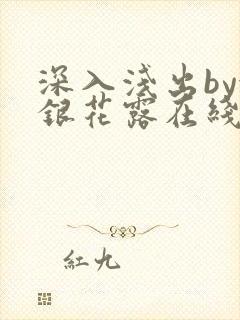 深入浅出by
銀花露在线
紅九